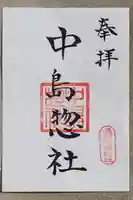 奉拝
中島惣社